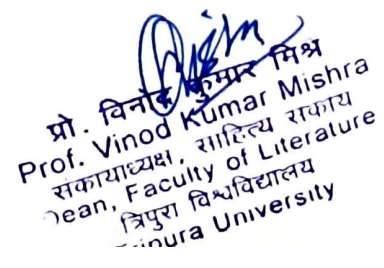 प्रो. विनोद कुमार मिश्र
Prof. Vinod Kumar Mishra
संकायाध्यक्ष, साहित्य संकाय
Dean, Faculty of Literature
त्रिपुरा विश्वविद्यालय
Tripura University